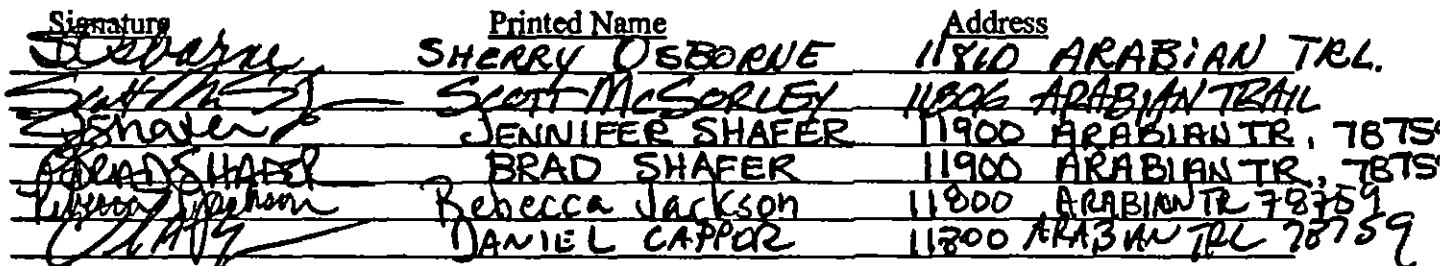 Signature Printed Name Address
SOsborne SHERRY OSBORNE 11810 ARABIAN TRL.
Scott McS SCOTT MCSORLEY 11806 ARABIAN TRAIL
JShafer JENNIFER SHAFER 11900 ARABIAN TR, 78759
BRAD SHAFER BRAD SHAFER 11900 ARABIAN TR, 78759
Rebecca Jackson Rebecca Jackson 11800 ARABIAN TR 78759
DANIEL CAPPOR 11800 ARABIAN TRL 78759